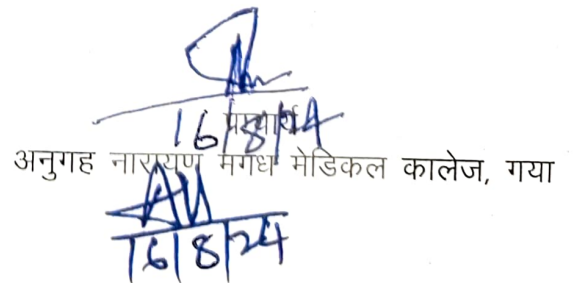 16/8/24
प्राचार्य
अनुगह नारायण मगध मेडिकल कालेज, गया
16/8/24